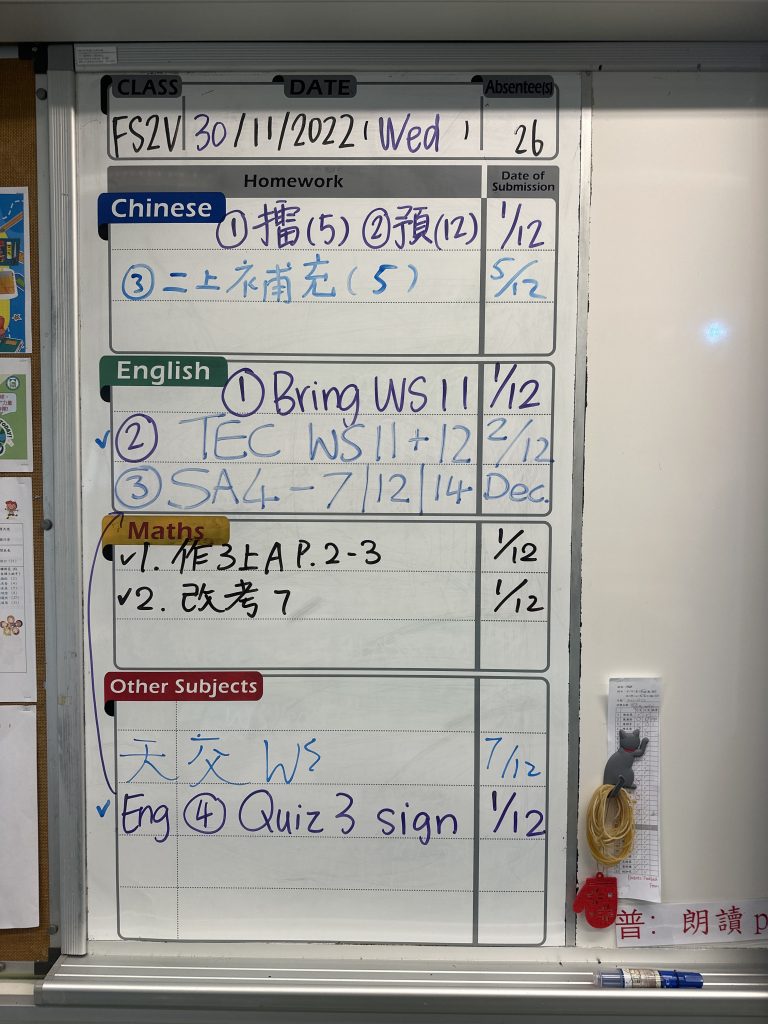 CLASS DATE Absentee(s)
FS2V 30/11/2022 (Wed) 26
Homework Date of Submission
Chinese
① 擂(5) ② 預(12) 1/12
③ 二上衣補充(5) 5/12
English
① Bring WS 11 1/12
② TEC WS 11 + 12 2/12
③ SA4 - 7|12|14 Dec.
Maths
1. 作3上A P.2-3 1/12
2. 改考7 1/12
Other Subjects
天交 WS 7/12
Eng ④ Quiz 3 sign 1/12
普: 朗讀 p